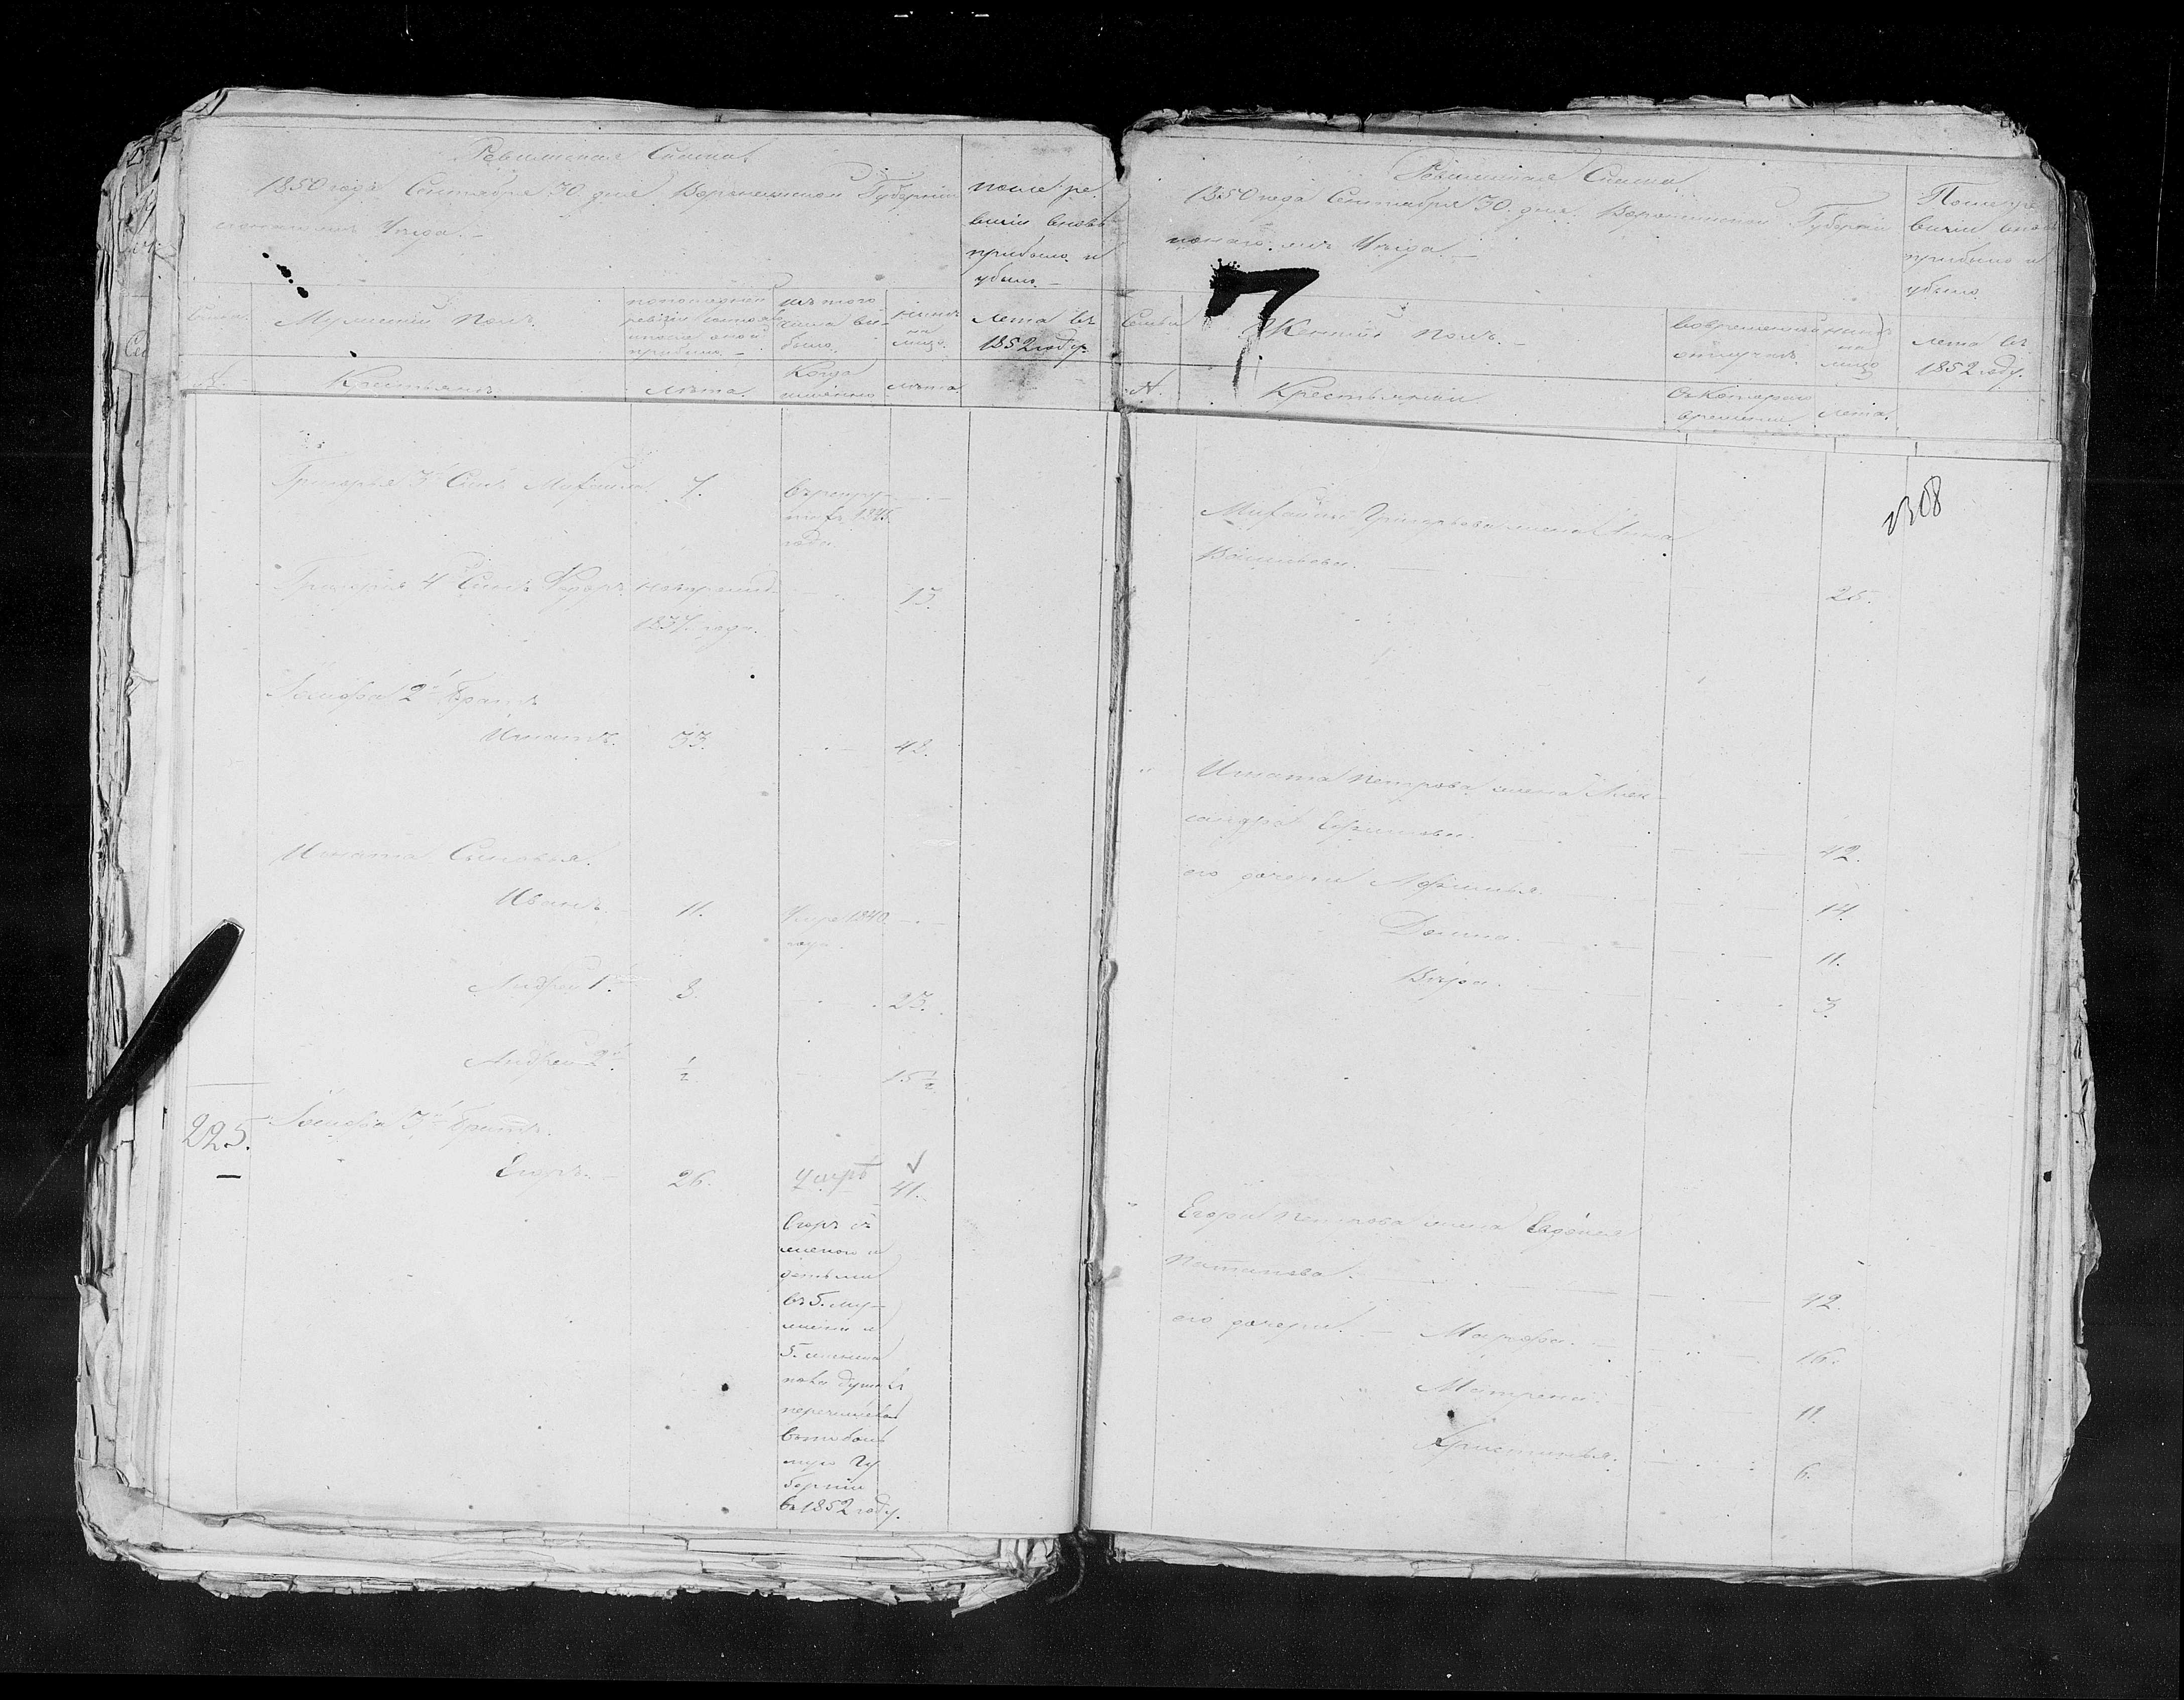 Ревизская Сказка.
1850 года Сентября 30 дня Воронежской Губернии
Уезда.
после ре-
визии вновь
прибыло и
убыло
Семьи
Мужеский полъ.
по последней
ревизии состояло
и после оной
прибыло
изъ того
числа вы-
было
ныне
на
лицо
лета въ
1852 году.
№
Крестьянъ
лета.
Когда
именно
лета
Григорья 3й Сынъ Михайла 7.
въ рекру-
1845
года
Григорья 4й Сынъ Федоръ
1837 года.
13.
Іосифа 2й Братъ
Игнатъ. 33. 48.
Игната Сыновья.
Иванъ. 11. Умре 1840
года
Андрей 1й 8. 23.
Андрей 2й ½ 15½
225. Іосифа 3й Братъ.
Егоръ. 26. умре 41.
Егоръ съ
женою и
детьми
въ 5. му-
жеска и
5. женска
пола душъ
перечисленъ
въ Тоболь-
скую Гу-
бернию
въ 1852 году.
Ревизская Сказка
1850 года Сентября 30 дня. Воронежской Губернии
Уезда
После ре-
визии вновь
прибыло и
убыло.
Семьи
Женский полъ.
во временной
отлучке
ныне
на
лицо
лета въ
1852 году.
№.
Крестьянки
Съ котораго
времени.
лета.
1308
Михайлы Григорьева жена Анна
Васильева. 25.
Игната Петрова жена Алек-
сандра Ефимова 42.
его дочери Афимья. 14.
Домна. 11.
Вера. 3.
Егора Петрова жена Евдокия
Потапова. 42.
его дочери. Марфа. 16.
Матрена 11.
Христинья. 6.